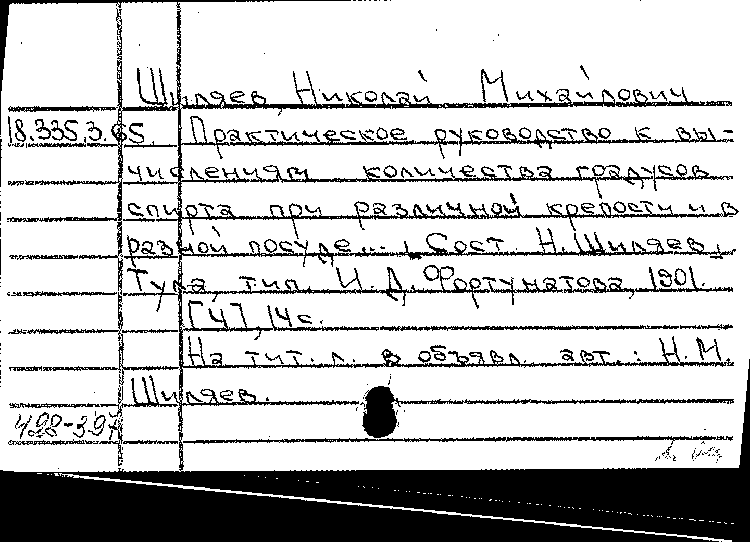 Шиляев, Николай Михайлович
18.335.3.65. Практическое руководство к вы-
числениям количества градусов
спирта при различной крепости и в
разной посуде... , Сост. Н. Шиляев,
Тула, тип. И. Д. Фортунатова, 1901.
[4], 14 с.
На тит. л. в объявл. авт.: Н. М.
Шиляев.
498-397